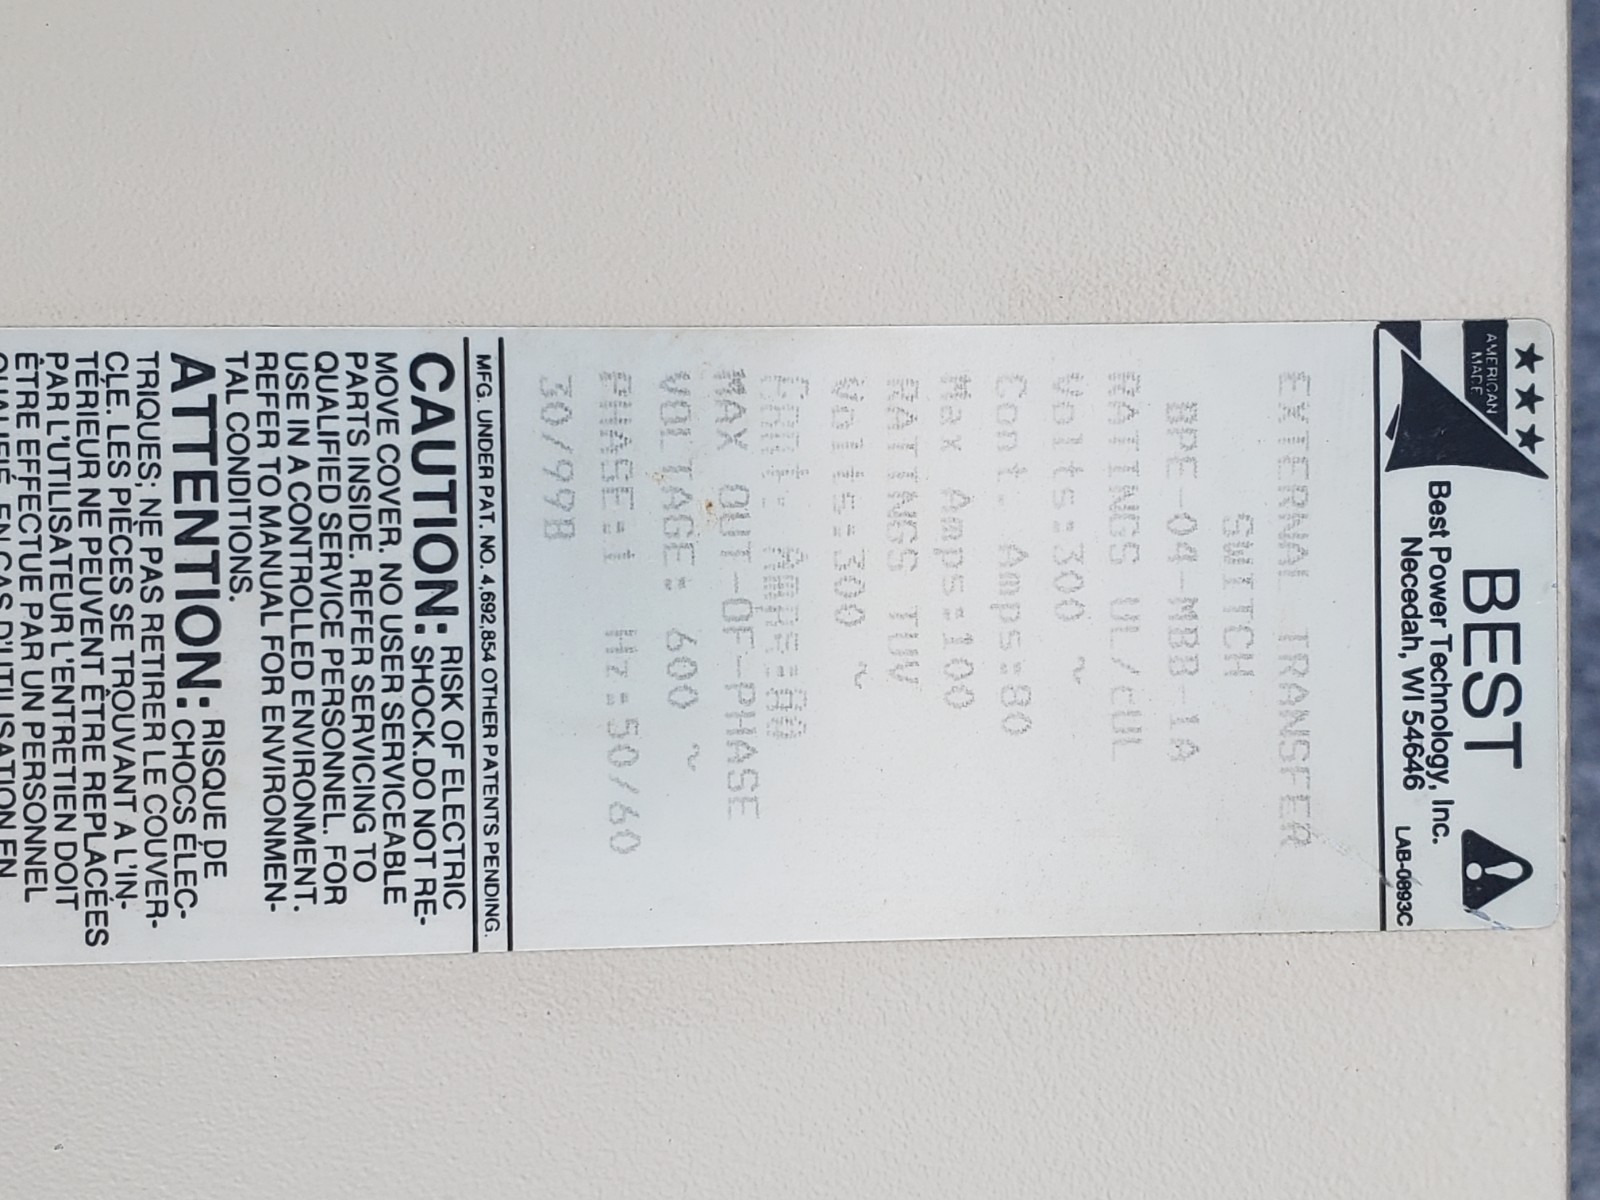 AMERICAN
MADE
BEST
Best Power Technology, Inc.
Necedah, WI 54646
LAB-0893C
EXTERNAL TRANSFER
SWITCH
BPE-04-MBB-1A
RATINGS UL/cUL
Volts:300 ~
Cont. Amps:80
Max Amps:100
RATINGS TUV
Volts:300 ~
Cont. Amps:80
MAX OUT-OF-PHASE
VOLTAGE: 600 ~
PHASE:1 Hz:50/60
30/99B
MFG. UNDER PAT. NO. 4,692,854 OTHER PATENTS PENDING.
CAUTION: RISK OF ELECTRIC
SHOCK.DO NOT RE-
MOVE COVER. NO USER SERVICEABLE
PARTS INSIDE. REFER SERVICING TO
QUALIFIED SERVICE PERSONNEL. FOR
USE IN A CONTROLLED ENVIRONMENT.
REFER TO MANUAL FOR ENVIRONMEN-
TAL CONDITIONS.
ATTENTION: RISQUE DE
CHOCS ÉLEC-
TRIQUES; NE PAS RETIRER LE COUVER-
CLE. LES PIÈCES SE TROUVANT A L'IN-
TÉRIEUR NE PEUVENT ÊTRE REPLACÉES
PAR L'UTILISATEUR L'ENTRETIEN DOIT
ÊTRE EFFECTUE PAR UN PERSONNEL
QUALIFIÉ. EN CAS D'UTILISATION EN